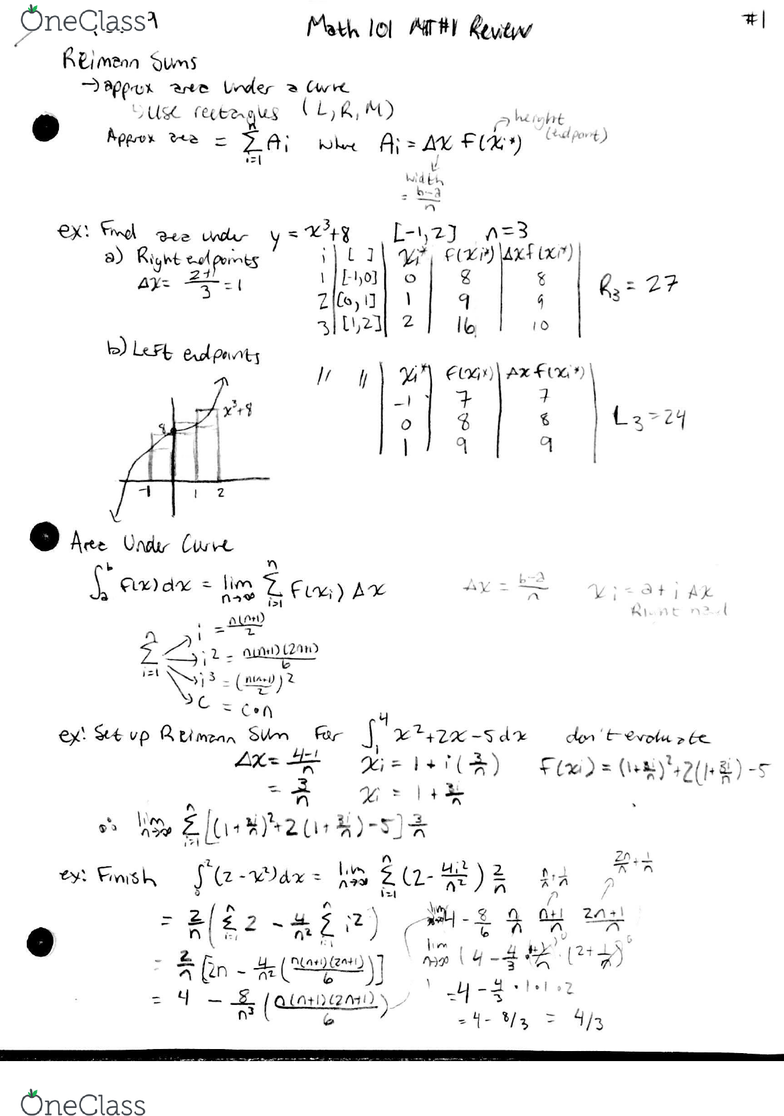 OneClass
Math 101 MT#1 Review
#1
Reimann Sums
→ approx area under a curve
↳ use rectangles (L, R, M)
Approx area = n∑i=1 Ai where Ai = Δx f(xi*)
→ height (endpoint)
width
= b-a/n
ex: Find area under y = x³+8 [-1,2] n=3
a) Right endpoints
Δx = 2+1/3 = 1
i | [ ] | xi* | f(xi*) | Δx f(xi*)
1 | [-1,0] | 0 | 8 | 8
2 | [0,1] | 1 | 9 | 9
3 | [1,2] | 2 | 16 | 10
R3 = 27
b) Left endpoints
" " | xi* | f(xi*) | Δx f(xi*)
-1 | 7 | 7
0 | 8 | 8
1 | 9 | 9
L3 = 24
8
x³+8
-1 1 2
Area Under Curve
∫ₐᵇ f(x) dx = lim n→∞ n∑i=1 f(xi) Δx
Δx = b-a/n xi = a + i Δx
Right
n∑i=1
i = n(n+1)/2
i² = n(n+1)(2n+1)/6
i³ = (n(n+1)/2)²
c = c•n
ex: Set up Reimann Sum for ∫₁⁴ x²+2x-5 dx don't evaluate
Δx = 4-1/n xi = 1 + i(3/n) f(xi) = (1+3i/n)²+2(1+3i/n)-5
= 3/n xi = 1 + 3i/n
∴ lim n→∞ n∑i=1 [(1+3i/n)²+2(1+3i/n)-5] 3/n
ex: Finish ∫₀² (2-x²)dx = lim n→∞ n∑i=1 (2-4i²/n²) 2/n
n/n + 1/n
2n/n + 1/n
= 2/n (n∑i=1 2 - 4/n² n∑i=1 i²)
= 2/n [2n - 4/n² (n(n+1)(2n+1)/6)]
= 4 - 8/n³ (n(n+1)(2n+1)/6)
lim 4 - 8/6 n/n n+1/n 2n+1/n
lim n→∞ (4 - 4/3 • 1+1/n (2+1/n)
= 4 - 4/3 • 1 • 1 • 2
= 4 - 8/3 = 4/3
OneClass